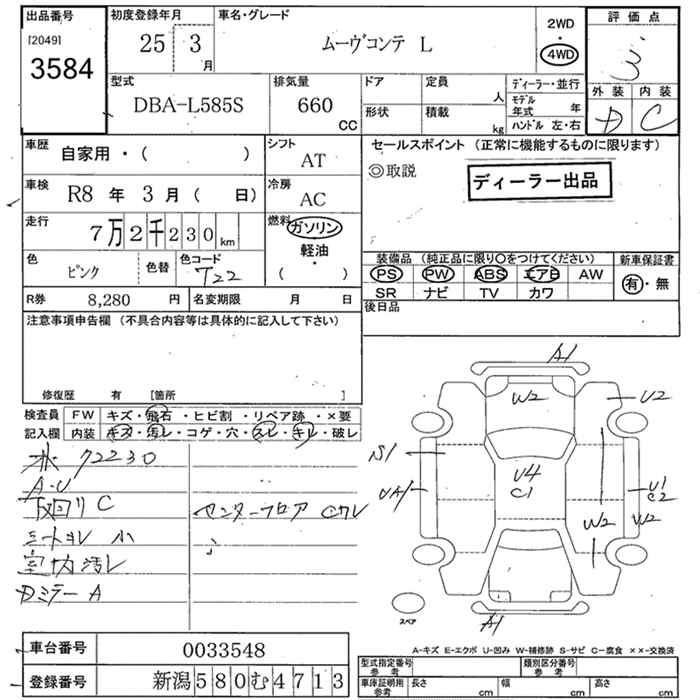 出品番号 初度登録年月 車名・グレード 2WD 評価点
[2049] 3584 25 3 月 ムーヴコンテ L 4WD 3
外装 内装
D C
型式 排気量 ドア 定員 人 ディーラー・並行
DBA-L585S 660 CC 形状 積載 kg モデル年式 年
ハンドル 左・右
車歴 自家用・( ) シフト AT セールスポイント (正常に機能するものに限ります)
◎取説 ディーラー出品
車検 R8 年 3 月 ( 日) 冷房 AC
走行 7万2千230 km 燃料 ガソリン
軽油
( )
色 ピンク 色替 色コード T22
装備品 (純正品に限り○をつけてください) 新車保証書
PS PW ABS エアB AW 有・無
SR ナビ TV カワ
R券 8,280 円 名変期限 月 日 後日品
注意事項申告欄 (不具合内容等は具体的に記入して下さい)
修復歴 有 [箇所 ]
検査員 FW キズ・飛石・ヒビ割・リペア跡・×要
記入欄 内装 キズ・汚レ・コゲ・穴・スレ・キレ・破レ
72230
A-U
下回リ C
センターフロア
シートヨレ 小
室内汚レ
A
A1
W2
U2
S1
U4
C1
UA1
U1
C2
W2
W2
A1
スペア
A-キズ E-エクボ U-凹み W-補修跡 S-サビ C-腐食 ××-交換済
車台番号 0033548
登録番号 新潟580む4713
型式指定番号 参考 類別区分番号 参考
車庫証明用 参考 長さ cm 幅 cm 高さ cm